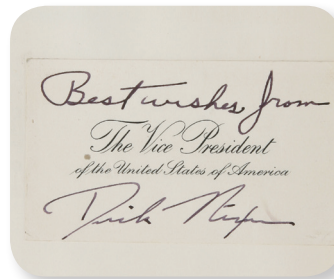 Best wishes from
The Vice President
of the United States of America
Dick Nixon